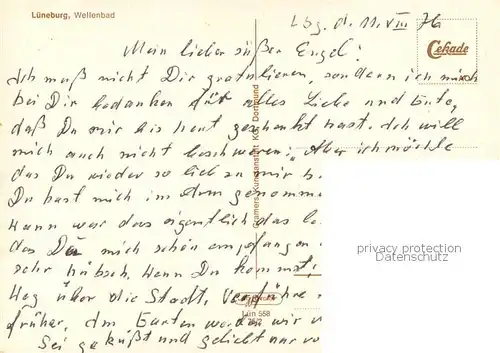 Lüneburg, Wellenbad
Lbg. d. 11. VIII 76
Cekade
Mein lieber süßer Engel!
Ich muß nicht Dir gratulieren, sondern ich muß
bei Dir bedanken für alles Liebe und Gute,
daß Du mir bis heut geschenkt hast. Ich will
mich auch nicht beschweren: Aber ich möchte
das Du wieder so lieb zu mir
Du hast mich im dem genomme
Wann war das eigentlich das
das Du mich schön empfangen
sehr hübsch. Wenn Du kommst,
Weg über die Stadt,
früher, im Garten werden wir
Sei geküßt und
Cramers Kunstanstalt KG, Dortmund
Lün 558
privacy protection
Datenschutz